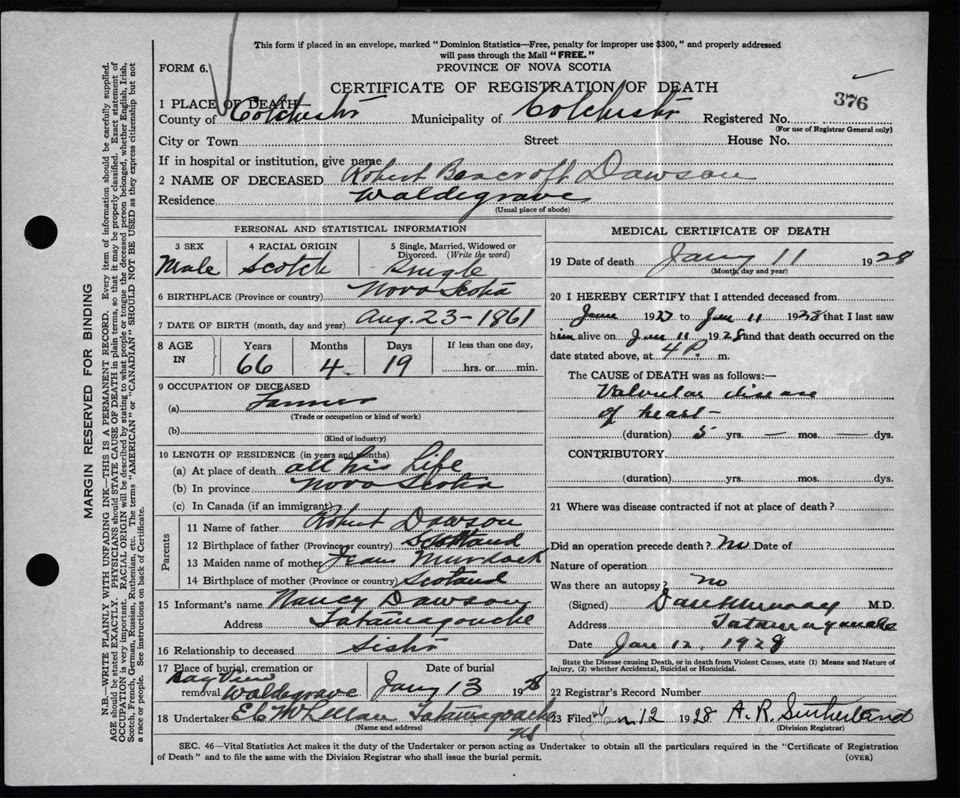 This form if placed in an envelope, marked "Dominion Statistics—Free, penalty for improper use $300," and properly addressed
will pass through the Mail "FREE."
FORM 6.
PROVINCE OF NOVA SCOTIA
CERTIFICATE OF REGISTRATION OF DEATH
376
1 PLACE OF DEATH—
County of Colchester Municipality of Colchester Registered No.
(For use of Registrar General only)
City or Town Street House No.
If in hospital or institution, give name
2 NAME OF DECEASED Robert Bancroft Dawson
Residence Waldegrave
(Usual place of abode)
PERSONAL AND STATISTICAL INFORMATION
3 SEX 4 RACIAL ORIGIN 5 Single, Married, Widowed or Divorced. (Write the word)
Male Scotch Single
6 BIRTHPLACE (Province or country) Nova Scotia
7 DATE OF BIRTH (month, day and year) Aug. 23-1861
8 AGE IN Years Months Days If less than one day,
66 4 19 hrs. or min.
9 OCCUPATION OF DECEASED
(a) Farmer
(Trade or occupation or kind of work)
(b)
(Kind of industry)
10 LENGTH OF RESIDENCE (in years and months)
(a) At place of death all his life
(b) In province Nova Scotia
(c) In Canada (if an immigrant)
Parents
11 Name of father Robert Dawson
12 Birthplace of father (Province or country) Scotland
13 Maiden name of mother Jean Murdock
14 Birthplace of mother (Province or country) Scotand
15 Informant's name Nancy Dawson
Address Tatamagouche
16 Relationship to deceased Sister
17 Place of burial, cremation or removal Bay View Waldegrave
Date of burial Jany 13 1928
18 Undertaker E C McLellan Tatamagouche
(Name and address) NS
MEDICAL CERTIFICATE OF DEATH
19 Date of death Jany 11 1928
(Month, day and year)
20 I HEREBY CERTIFY that I attended deceased from
June 1927 to Jan 11 1928 that I last saw
him alive on Jan 11 1928 and that death occurred on the
date stated above, at 4 P. m.
The CAUSE of DEATH was as follows:—
Valvular disease
of heart -
(duration) 5 yrs. — mos. — dys.
CONTRIBUTORY
(duration) yrs. mos. dys.
21 Where was disease contracted if not at place of death?
Did an operation precede death? No Date of
Nature of operation
Was there an autopsy? No
(Signed) Dan Murray M.D.
Address Tatamagouche
Date Jan 12, 1928
State the Disease causing Death, or in death from Violent Causes, state (1) Means and Nature of
Injury, (2) whether Accidental, Suicidal or Homicidal.
22 Registrar's Record Number
23 Filed Jan 12 1928 A. R. Sutherland
(Division Registrar)
SEC. 46—Vital Statistics Act makes it the duty of the Undertaker or person acting as Undertaker to obtain all the particulars required in the "Certificate of Registration
of Death" and to file the same with the Division Registrar who shall issue the burial permit.
(OVER)
MARGIN RESERVED FOR BINDING
N.B.—WRITE PLAINLY WITH UNFADING INK—THIS IS A PERMANENT RECORD. Every item of information should be carefully supplied.
AGE should be stated EXACTLY. PHYSICIANS should STATE CAUSE OF DEATH in plain terms, so that it may be properly classified. Exact statement of
OCCUPATION is very important. RACIAL ORIGIN will be described by stating to what people or tongue the deceased person belonged, whether English, Irish,
Scotch, French, German, Russian, Ruthenian, etc. The terms "AMERICAN" or "CANADIAN" SHOULD NOT BE USED as they express citizenship but not
a race or people. See instructions on back of Certificate.